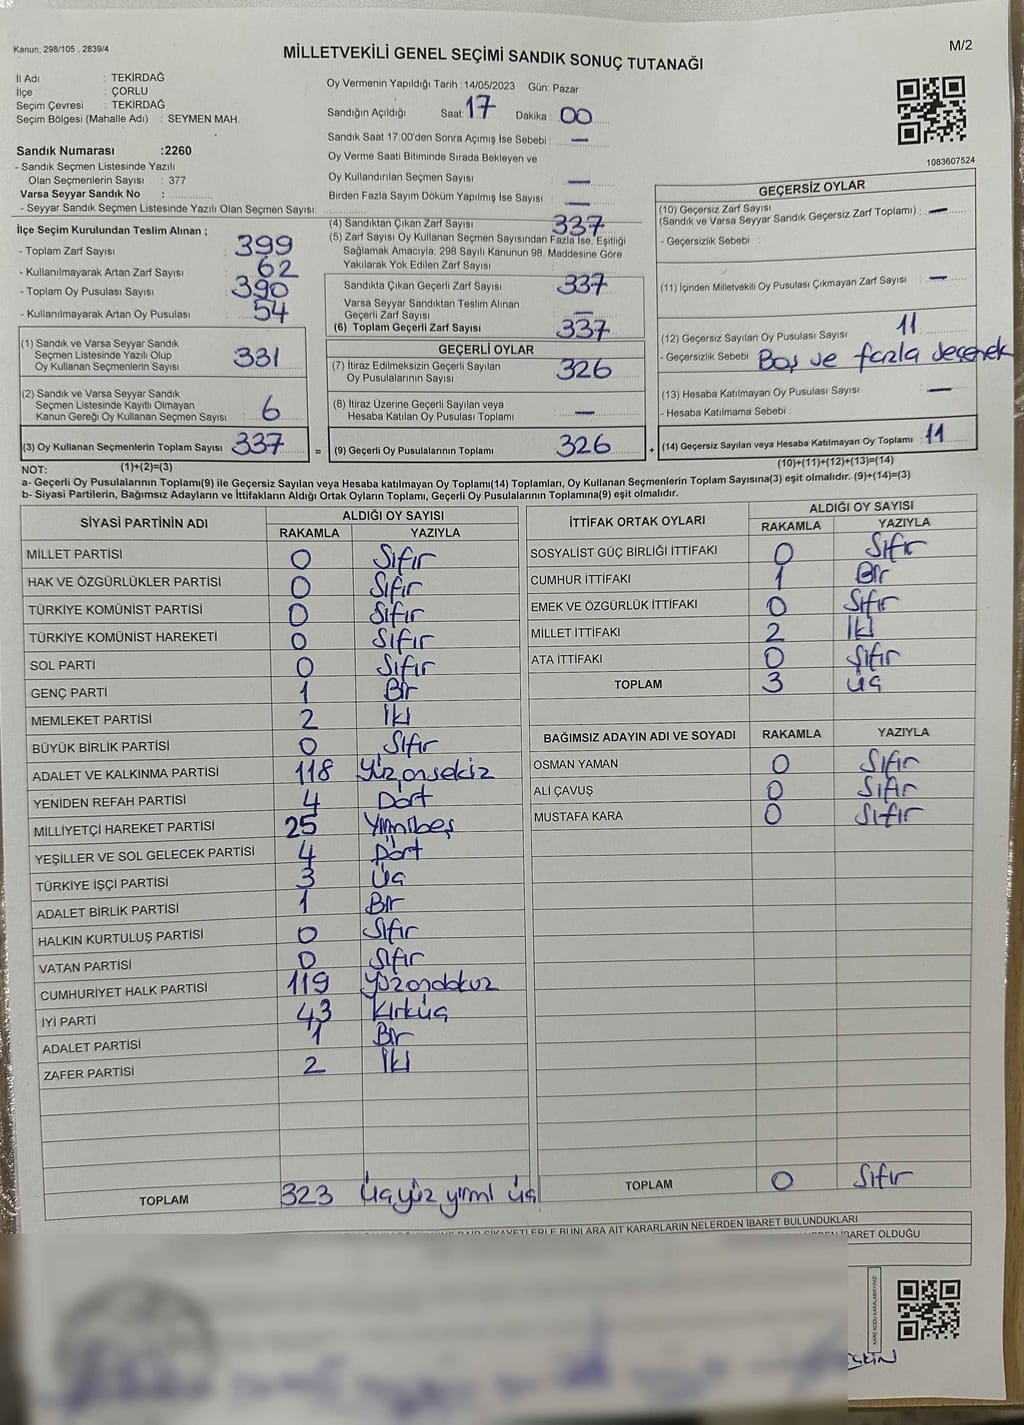 Kanun; 298/105 , 2839/4
MİLLETVEKİLİ GENEL SEÇİMİ SANDIK SONUÇ TUTANAĞI
M/2
İl Adı : TEKİRDAĞ
İlçe : ÇORLU
Seçim Çevresi : TEKİRDAĞ
Seçim Bölgesi (Mahalle Adı) : SEYMEN MAH.
Sandık Numarası :2260
- Sandık Seçmen Listesinde Yazılı
Olan Seçmenlerin Sayısı : 377
Varsa Seyyar Sandık No :
- Seyyar Sandık Seçmen Listesinde Yazılı Olan Seçmen Sayısı:
İlçe Seçim Kurulundan Teslim Alınan ;
- Toplam Zarf Sayısı : 399
- Kullanılmayarak Artan Zarf Sayısı : 62
- Toplam Oy Pusulası Sayısı : 390
- Kullanılmayarak Artan Oy Pusulası : 54
(1) Sandık ve Varsa Seyyar Sandık
Seçmen Listesinde Yazılı Olup
Oy Kullanan Seçmenlerin Sayısı : 331
(2) Sandık ve Varsa Seyyar Sandık
Seçmen Listesinde Kayıtlı Olmayan
Kanun Gereği Oy Kullanan Seçmen Sayısı : 6
(3) Oy Kullanan Seçmenlerin Toplam Sayısı 337 =
Oy Vermenin Yapıldığı Tarih :14/05/2023 Gün: Pazar
Sandığın Açıldığı Saat: 17 Dakika : 00
Sandık Saat 17:00'den Sonra Açımış İse Sebebi : —
Oy Verme Saati Bitiminde Sırada Bekleyen ve
Oy Kullandırılan Seçmen Sayısı : —
Birden Fazla Sayım Döküm Yapılmış İse Sayısı : —
(4) Sandıktan Çıkan Zarf Sayısı : 337
(5) Zarf Sayısı Oy Kullanan Seçmen Sayısından Fazla İse, Eşitliği
Sağlamak Amacıyla, 298 Sayılı Kanunun 98. Maddesine Göre
Yakılarak Yok Edilen Zarf Sayısı :
Sandıkta Çıkan Geçerli Zarf Sayısı : 337
Varsa Seyyar Sandıktan Teslim Alınan
Geçerli Zarf Sayısı : —
(6) Toplam Geçerli Zarf Sayısı : 337
GEÇERLİ OYLAR
(7) İtiraz Edilmeksizin Geçerli Sayılan
Oy Pusulalarının Sayısı : 326
(8) İtiraz Üzerine Geçerli Sayılan veya
Hesaba Katılan Oy Pusulası Toplamı : —
(9) Geçerli Oy Pusulalarının Toplamı : 326 +
1083607524
GEÇERSİZ OYLAR
(10) Geçersiz Zarf Sayısı
(Sandık ve Varsa Seyyar Sandık Geçersiz Zarf Toplamı) : —
- Geçersizlik Sebebi :
(11) İçinden Milletvekili Oy Pusulası Çıkmayan Zarf Sayısı : —
(12) Geçersiz Sayılan Oy Pusulası Sayısı : 11
- Geçersizlik Sebebi Boş ve fazla seçenek
(13) Hesaba Katılmayan Oy Pusulası Sayısı : —
- Hesaba Katılmama Sebebi :
(14) Geçersiz Sayılan veya Hesaba Katılmayan Oy Toplamı : 11
NOT: (1)+(2)=(3) (10)+(11)+(12)+(13)=(14)
a- Geçerli Oy Pusulalarının Toplamı(9) ile Geçersiz Sayılan veya hesaba katılmayan Oy Toplamı(14) Toplamları, Oy Kullanan Seçmenlerin Toplam Sayısına(3) eşit olmalıdır. (9)+(14)=(3)
b- Siyasi Partilerin, Bağımsız Adayların ve İttifakların Aldığı Ortak Oyların Toplamı, Geçerli Oy Pusulalarının Toplamına(9) eşit olmalıdır.
SİYASİ PARTİNİN ADI ALDIĞI OY SAYISI
RAKAMLA YAZIYLA
MİLLET PARTİSİ 0 Sıfır
HAK VE ÖZGÜRLÜKLER PARTİSİ 0 Sıfır
TÜRKİYE KOMÜNİST PARTİSİ 0 Sıfır
TÜRKİYE KOMÜNİST HAREKETİ 0 Sıfır
SOL PARTİ 0 Sıfır
GENÇ PARTİ 1 Bir
MEMLEKET PARTİSİ 2 İki
BÜYÜK BİRLİK PARTİSİ 0 Sıfır
ADALET VE KALKINMA PARTİSİ 118 Yüzonsekiz
YENİDEN REFAH PARTİSİ 4 Dört
MİLLİYETÇİ HAREKET PARTİSİ 25 Yirmibeş
YEŞİLLER VE SOL GELECEK PARTİSİ 4 Dört
TÜRKİYE İŞÇİ PARTİSİ 3 Üç
ADALET BİRLİK PARTİSİ 1 Bir
HALKIN KURTULUŞ PARTİSİ 0 Sıfır
VATAN PARTİSİ 0 Sıfır
CUMHURİYET HALK PARTİSİ 119 Yüzondokuz
İYİ PARTİ 43 Kırküç
ADALET PARTİSİ 1 Bir
ZAFER PARTİSİ 2 İki
TOPLAM 323 Üçyüz yirmi üç
İTTİFAK ORTAK OYLARI ALDIĞI OY SAYISI
RAKAMLA YAZIYLA
SOSYALİST GÜÇ BİRLİĞİ İTTİFAKI 0 Sıfır
CUMHUR İTTİFAKI 1 Bir
EMEK VE ÖZGÜRLÜK İTTİFAKI 0 Sıfır
MİLLET İTTİFAKI 2 İki
ATA İTTİFAKI 0 Sıfır
TOPLAM 3 Üç
BAĞIMSIZ ADAYIN ADI VE SOYADI RAKAMLA YAZIYLA
OSMAN YAMAN 0 Sıfır
ALİ ÇAVUŞ 0 Sıfır
MUSTAFA KARA 0 Sıfır
TOPLAM 0 Sıfır
ŞİKAYETLERLE BUNLARA AİT KARARLARIN NELERDEN İBARET BULUNDUKLARI
İBARET OLDUĞU
KARE KODU KARALAMAYINIZ!